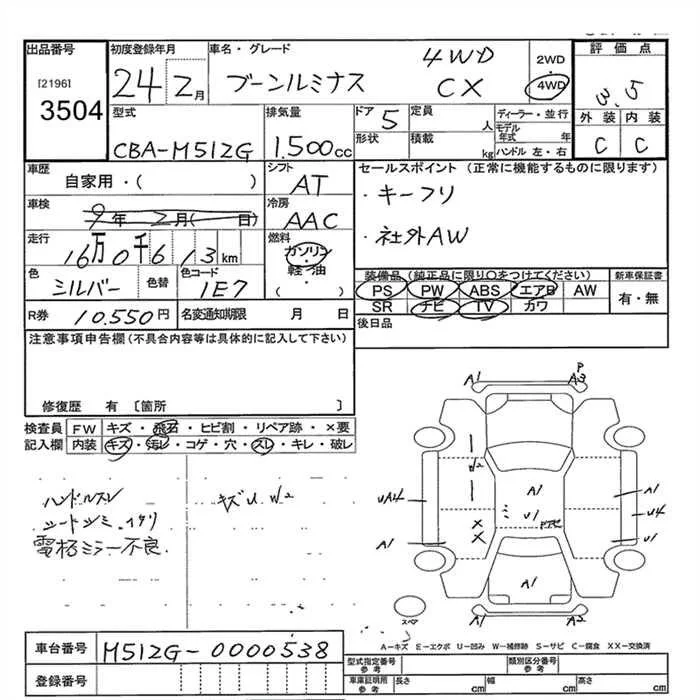 出品番号 初度登録年月 車名・グレード 評価点
[2196] 3504 24 2月 ブーンルミナス 4WD CX 2WD 4WD 3.5
外装 内装
C C
型式 排気量 ドア 5 定員 人 ディーラー・並行
CBA-M512G 1.500cc 形状 積載 kg モデル年式 年
ハンドル 左・右
車歴 シフト セールスポイント (正常に機能するものに限ります)
自家用・( ) AT ・キーフリ
車検 9年 2月( 日) 冷房 AAC ・社外AW
走行 16万0千613km 燃料 ガソリン・軽油 ( )
色 シルバー 色替 色コード 1E7
装備品 (純品に限り○をつけてください) 新車保証書
PS PW ABS エアB AW 有・無
SR ナビ TV カワ
R券 10.550円 名変通知期限 月 日 後日品
注意事項申告欄 (不具合内容等は具体的に記入して下さい)
修復歴 有 〔箇所 〕
検査員 FW キズ・飛石・ヒビ割・リペア跡・×要
記入欄 内装 キズ・汚レ・コゲ・穴・スレ・キレ・破レ
ハンドルスレ キズU W2
電格ミラー不良
A1 P A3
W2
UA4 A1 A1 U4
U1
A1 U1
×
×
A1
スペア A1 A2
A=キズ E=エクボ U=凹み W=補修跡 S=サビ C=腐食 XX=交換済
車台番号 M512G-0000538
登録番号
型式指定番号 参考 類別区分番号 参考
車庫証明用 参考 長さ cm 幅 cm 高さ cm